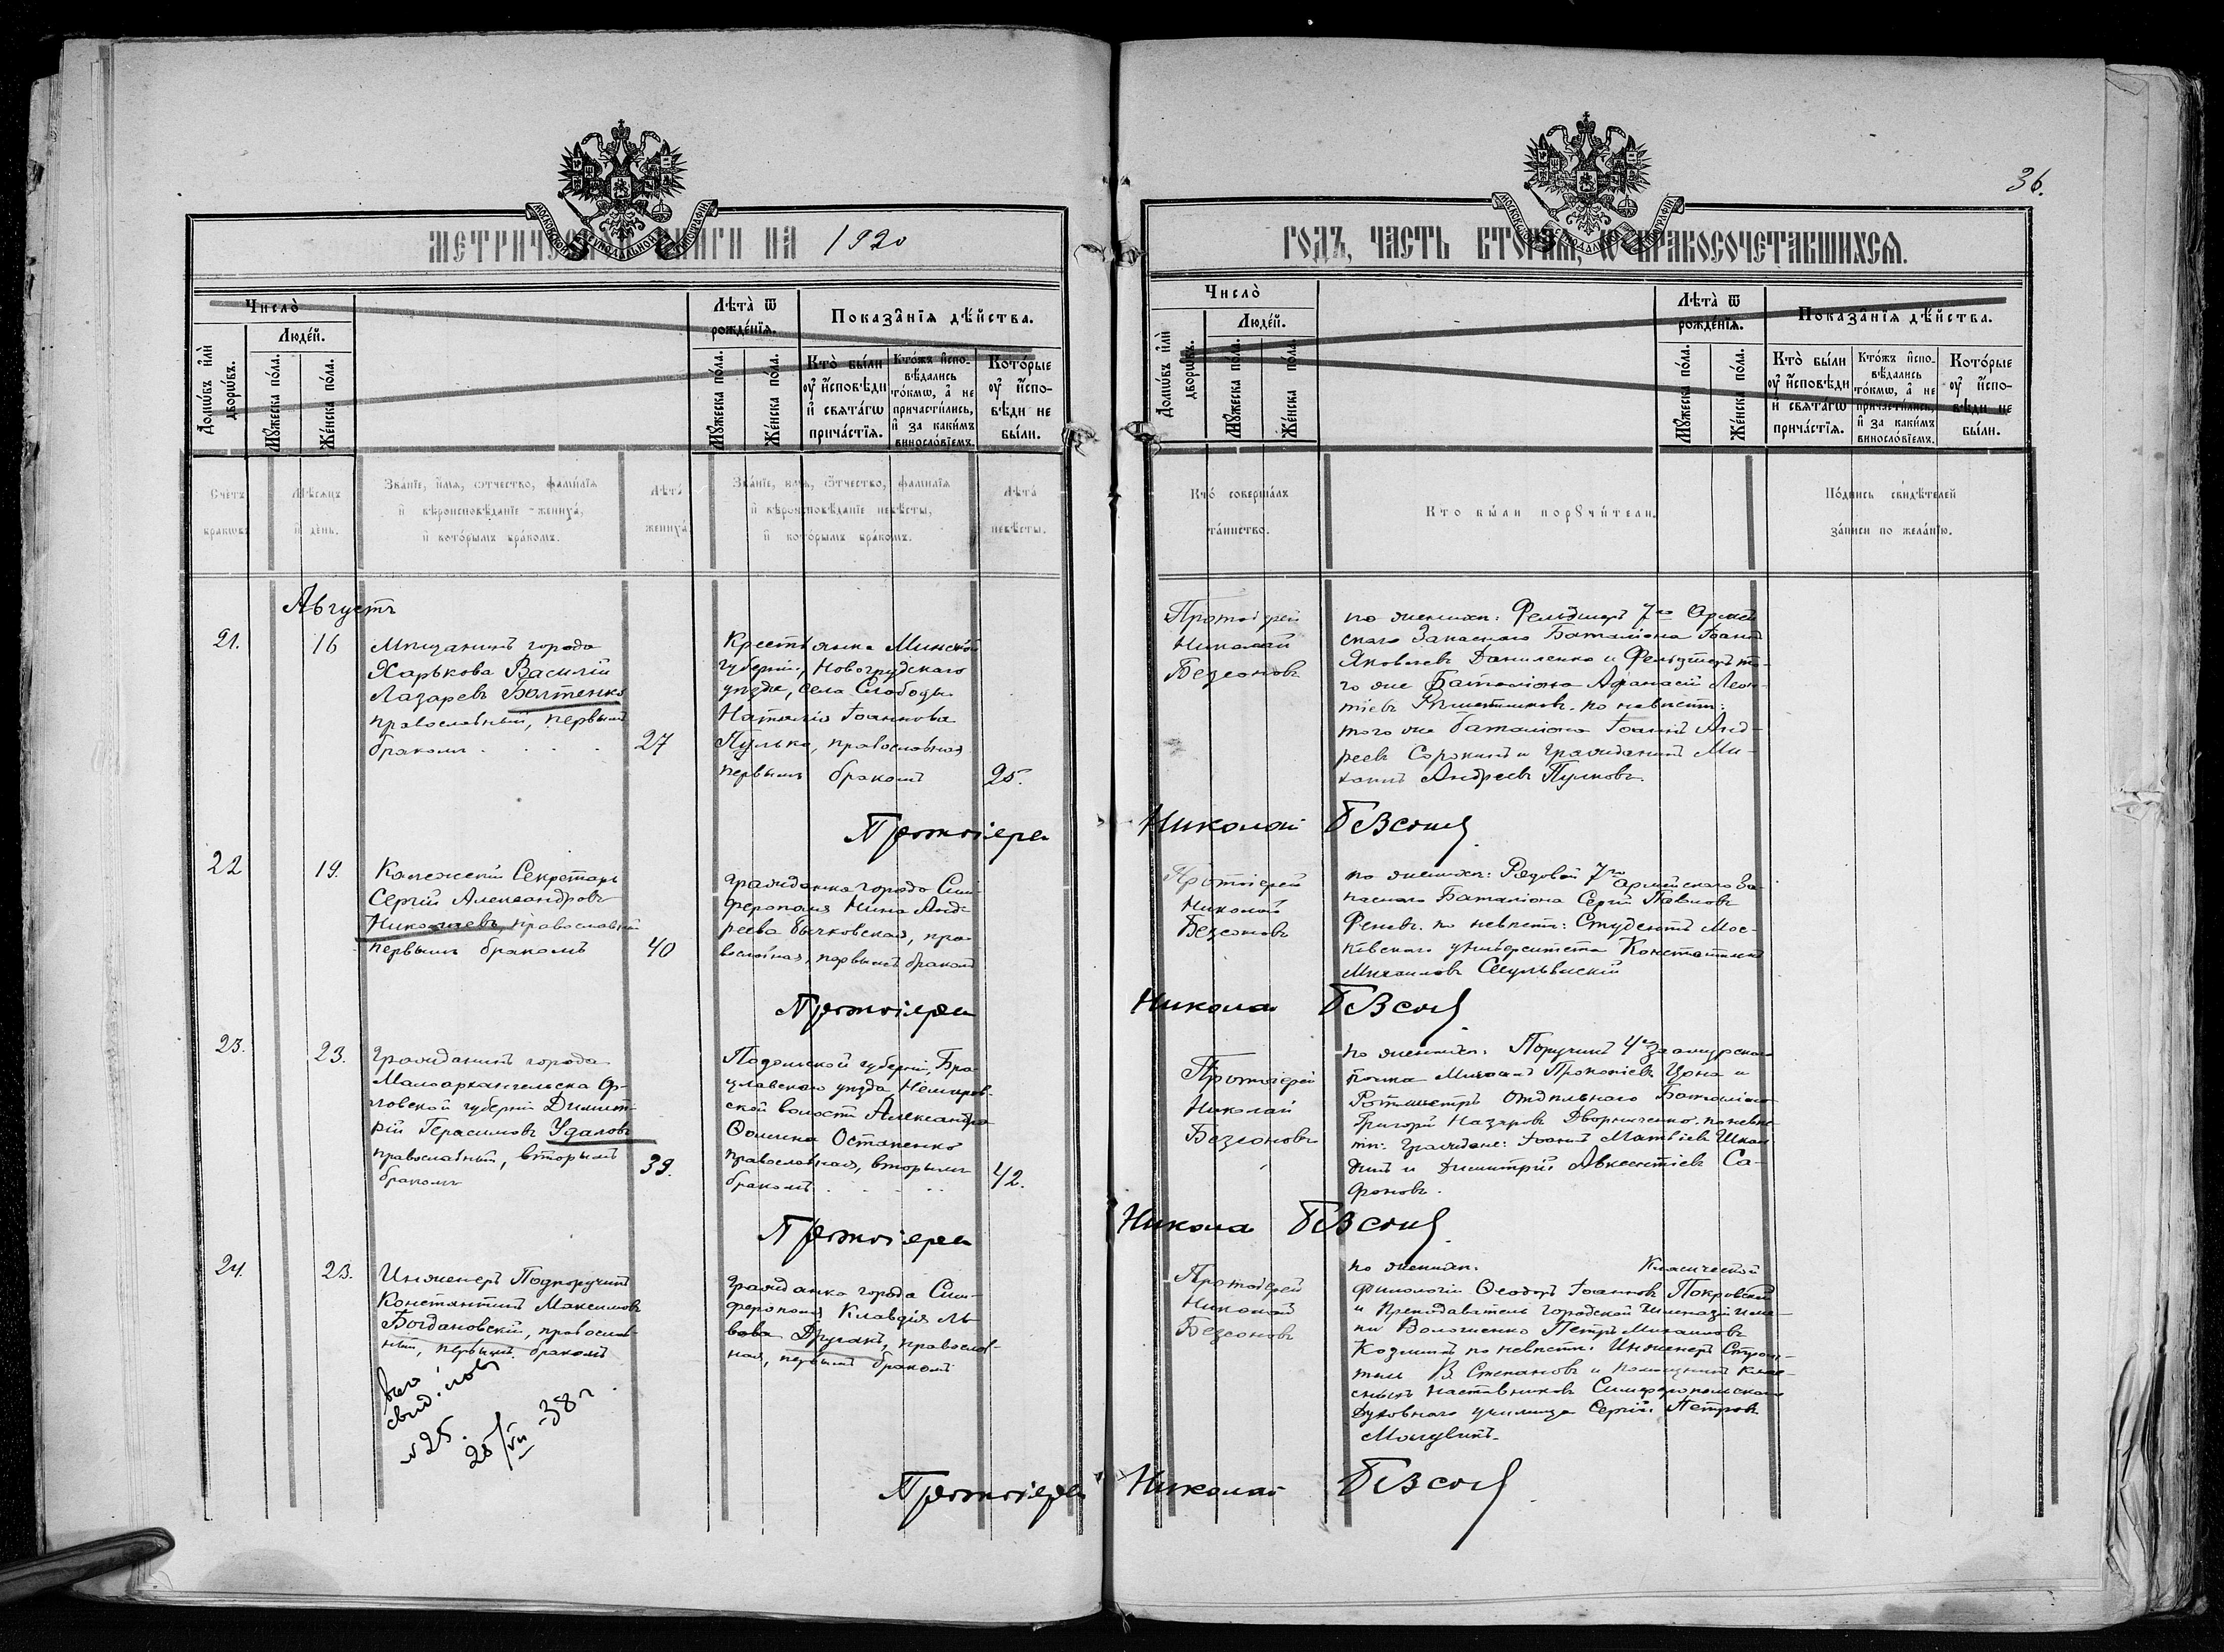 36.
МОСКОВСКОЙ СУНОДАЛЬНОЙ ТИПОГРАФІИ
МОСКОВСКОЙ СУНОДАЛЬНОЙ ТИПОГРАФІИ
МЕТРИЧЕСКОЙ КНИГИ НА 1920
ГОДЪ, ЧАСТЬ ВТОРАЯ, Ѡ БРАКОСОЧЕТАВШИХСЯ.
Число̀
Людéй.
Домѡ́въ и҆лѝ дворѡ́въ.
Мꙋ́жеска по́ла.
Же́нска по́ла.
Лѣта̀ ѿ рождéнїѧ.
Мꙋ́жеска по́ла.
Же́нска по́ла.
Показа̑нїѧ дѣ́йства.
Кто̀ бы́ли
ᲂу҆ и҆́сповѣди
и҆ свѧта́гѡ
прича́стїѧ.
Кто́жъ и҆спо-
вѣ́дались
то́кмѡ, а҆ не
причасти́лись,
и҆ за каки́мъ
винослóвїемъ.
Кото́рые
ᲂу҆ и҆́спо-
вѣди не
бы́ли.
Счетъ
браковъ
Мѣсяцъ
и день.
Званіе, имя, отчество, фамилія
и вѣроисповѣданіе жениха,
и которымъ бракомъ.
Лѣта
жениха.
Званіе, имя, отчество, фамилія
и вѣроисповѣданіе невѣсты,
и которымъ бракомъ.
Лѣта
невѣсты.
Число̀
Людéй.
Домѡ́въ и҆лѝ дворѡ́въ.
Мꙋ́жеска по́ла.
Же́нска по́ла.
Лѣта̀ ѿ рождéнїѧ.
Мꙋ́жеска по́ла.
Же́нска по́ла.
Показа̑нїѧ дѣ́йства.
Кто̀ бы́ли
ᲂу҆ и҆́сповѣди
и҆ свѧта́гѡ
прича́стїѧ.
Кто́жъ и҆спо-
вѣ́дались
то́кмѡ, а҆ не
причасти́лись,
и҆ за каки́мъ
винослóвїемъ.
Кото́рые
ᲂу҆ и҆́спо-
вѣди не
бы́ли.
Кто совершалъ
таинство.
Кто были поручители.
Подпись свидѣтелей
записи по желанію.
Августъ
21.
16
Мѣщанинъ города
Харькова Василій
Лазаревъ Болтенко
православный, первымъ
бракомъ
27
Крестьянка Минской
губерніи, Новогрудскаго
уѣзда, села Слободы
Наталія Іоаннова
Пулько, православная
первымъ бракомъ
25.
Протоіерей
Николай
Безсоновъ
по женихѣ: Фельдшеръ 7го Армей
скаго Запаснаго Баталіона Іоаннъ
Яковлевъ Даниленко и Фельдшеръ то-
го же Баталіона Афанасій Леон-
тіевъ Рѣшетниковъ. по невѣстѣ:
того же баталіона Іоаннъ Анд-
реевъ Сорокинъ и гражданинъ Ми-
хаилъ Андреевъ Пулковъ.
Протоіерей Николай Безсонов
22
19.
Коллежскій Секретарь
Сергій Александровъ
Николаевъ, православный
первымъ бракомъ
40
Гражданка города Сим-
ферополя Нина Анд-
реева Бычковская, пра-
вославная, первымъ бракомъ
Протоіерей
Николай
Безсоновъ
по женихѣ: Рядовой 7го Армейскаго За-
паснаго Баталіона Сергій Павловъ
по невѣстѣ: Студентъ Мос-
ковскаго университета Константинъ
Михаиловъ
Протоіерей Николай Безсонов
23.
23.
Гражданинъ города
Малоархангельска Ор-
ловской губерніи Димит-
рій Герасимовъ Удаловъ
православный, вторымъ
бракомъ
39.
Подольской губерніи, Бра-
цлавскаго уѣзда Немиров-
ской волости Александра
Ѳомина Остапенко
православная, вторымъ
бракомъ
42.
Протоіерей
Николай
Безсоновъ
по женихѣ: Поручикъ 4го Заамурскаго
полка Михаилъ Прокопіевъ Цона и
Ротмистръ Отдѣльнаго Баталіона
Григорій Назаровъ Дворниченко. по невѣс-
тѣ: Граждане: Іоаннъ Матвѣевъ
и Димитрій Авксентіевъ Са-
фоновъ.
Протоіерей Николай Безсонов
24.
23.
Инженеръ Подпоручикъ
Константинъ Максимовъ
Богдановскій, православ-
ный, первымъ бракомъ
№ 25.
25/VII-38 г.
Гражданка города Сим-
ферополя Клавдія Ль-
вова Другакъ, православ-
ная, первымъ бракомъ
Протоіерей
Николай
Безсоновъ
по женихѣ: Классической
филологіи Ѳеодоръ Іоанновъ Покровскій
и Преподаватель городской гимназіи име-
ни Волошенко Петръ Михаиловъ
Козминъ по невѣстѣ: Инженеръ Строи-
тель В. Степановъ и помощникъ клас-
сныхъ наставниковъ Симферопольскаго
Духовнаго училища Сергій Петровъ
Протоіерей Николай Безсонов